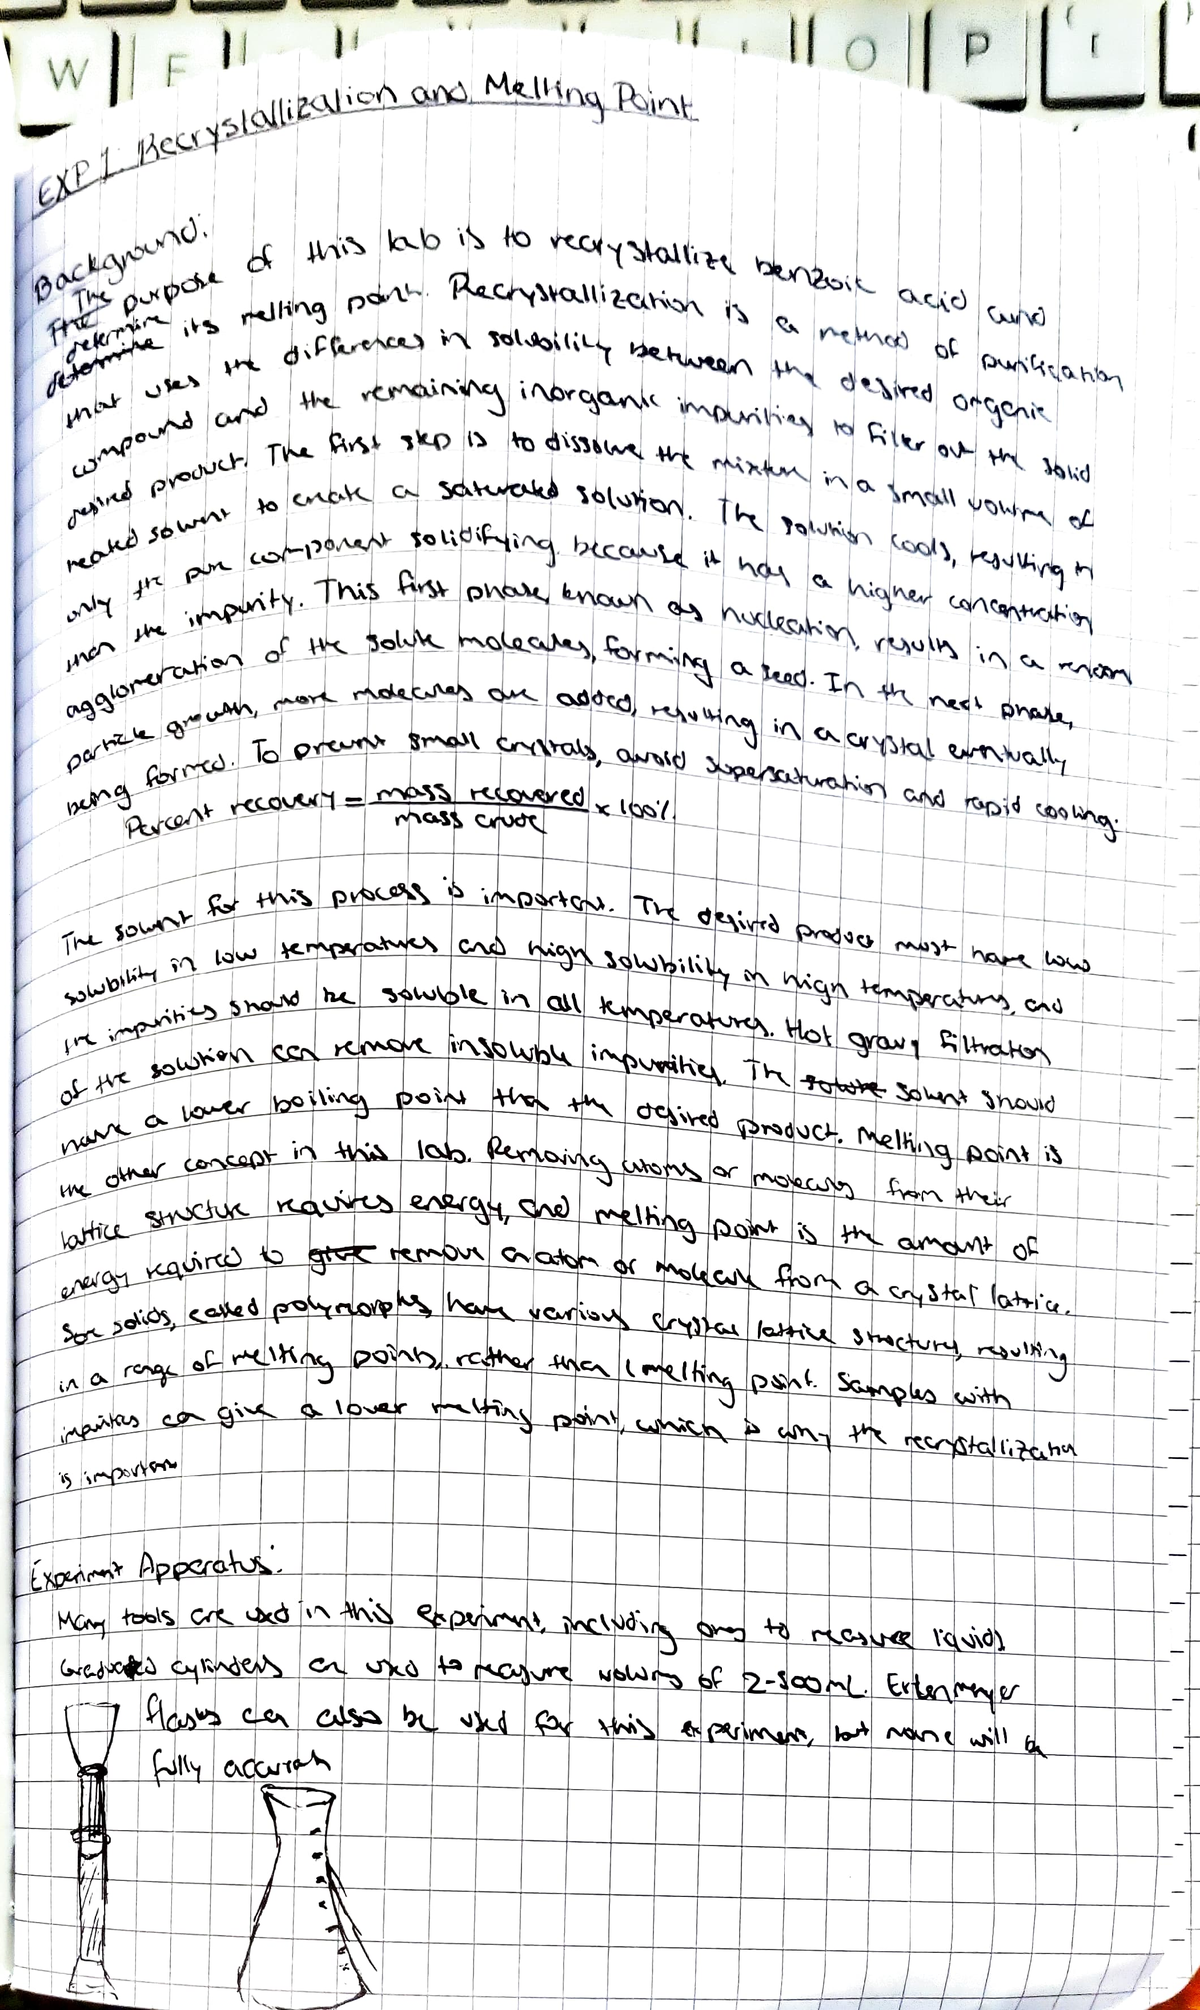 W E O P [
EXP 1. Recrystallization and Melting Point
Background:
The purpose of this lab is to recrystallize benzoic acid and
determine its melting point. Recrystallization is a method of purification
that uses the differences in solubility between the desired organic
compound and the remaining inorganic impurities to filter out the solid
desired product. The first step is to dissolve the mixture in a small volume of
heated solvent to create a saturated solution. The solution cools, resulting in
only the pure component solidifying because it has a higher concentration
than the impurity. This first phase, known as nucleation, results in a random
agglomeration of the solute molecules, forming a seed. In the next phase,
particle growth, more molecules are added, resulting in a crystal eventually
being formed. To prevent small crystals, avoid supersaturation and rapid cooling.
Percent recovery = mass recovered / mass crude × 100%.
The solvent for this process is important. The desired product must have low
solubility in low temperatures and high solubility in high temperatures, and
the impurities should be soluble in all temperatures. Hot gravy filtration
of the solution can remove insoluble impurities. The solute solvent should
have a lower boiling point than the desired product. Melting point is
the other concept in this lab. Removing atoms or molecules from their
lattice structure requires energy, and melting point is the amount of
energy required to give remove an atom or molecule from a crystal lattice.
Some solids, called polymorphs, have various crystal lattice structures, resulting
in a range of melting points, rather than 1 melting point. Samples with
impurities can give a lower melting point, which is why the recrystallization
is important
Experiment Apparatus:
Many tools are used in this experiment, including ones to measure liquids.
Graduated cylinders are used to measure volumes of 2-500mL. Erlenmeyer
flasks can also be used for this experiment, but none will be
fully accurate